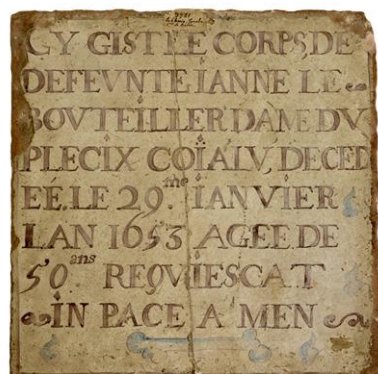 CY GIST LE CORPS, DE
DEFEVNTE IANNE LE
BOVTEILLER DAME DV
PLECIX COIALV, DECED
ÉE. LE 29.me IANVIER
LAN 1653 AGEE DE
50.ans REQVIESCAT
IN PACE A MEN